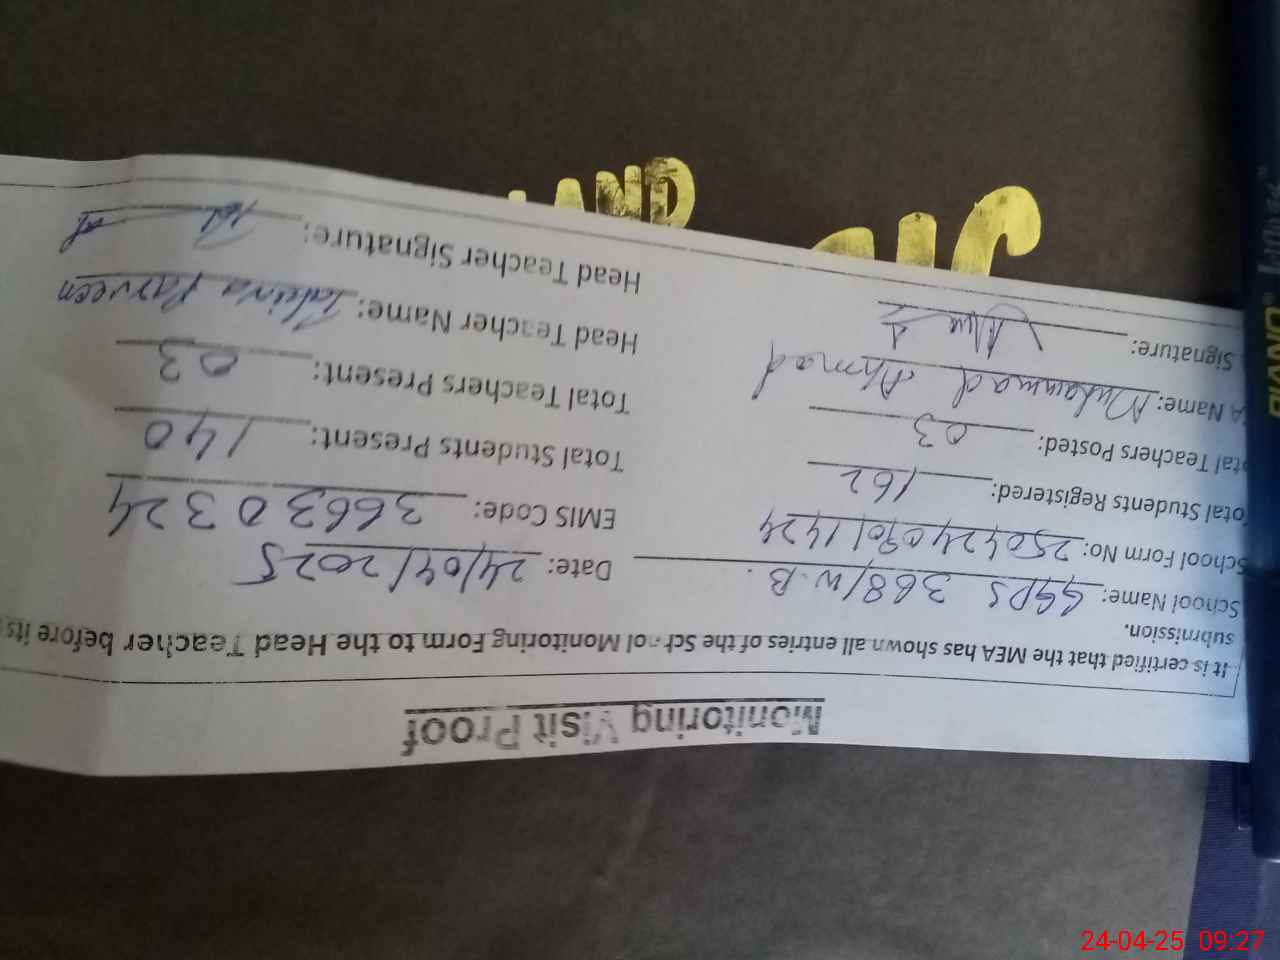 Monitoring Visit Proof
It is certified that the MEA has shown all entries of the School Monitoring Form to the Head Teacher before its
submission.
School Name: GGPS 368/W.B. Date: 24/04/2025
School Form No: 25042409011424 EMIS Code: 36630324
Total Students Registered: 162 Total Students Present: 140
Total Teachers Posted: 03 Total Teachers Present: 03
A Name: Muhammad Ahmad Head Teacher Name: Parveen
Signature: Head Teacher Signature:
AND
PIANO
24-04-25 09:27